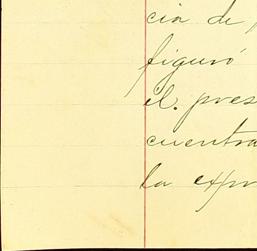 cia de
figuró
el pres
cuentra
la expr